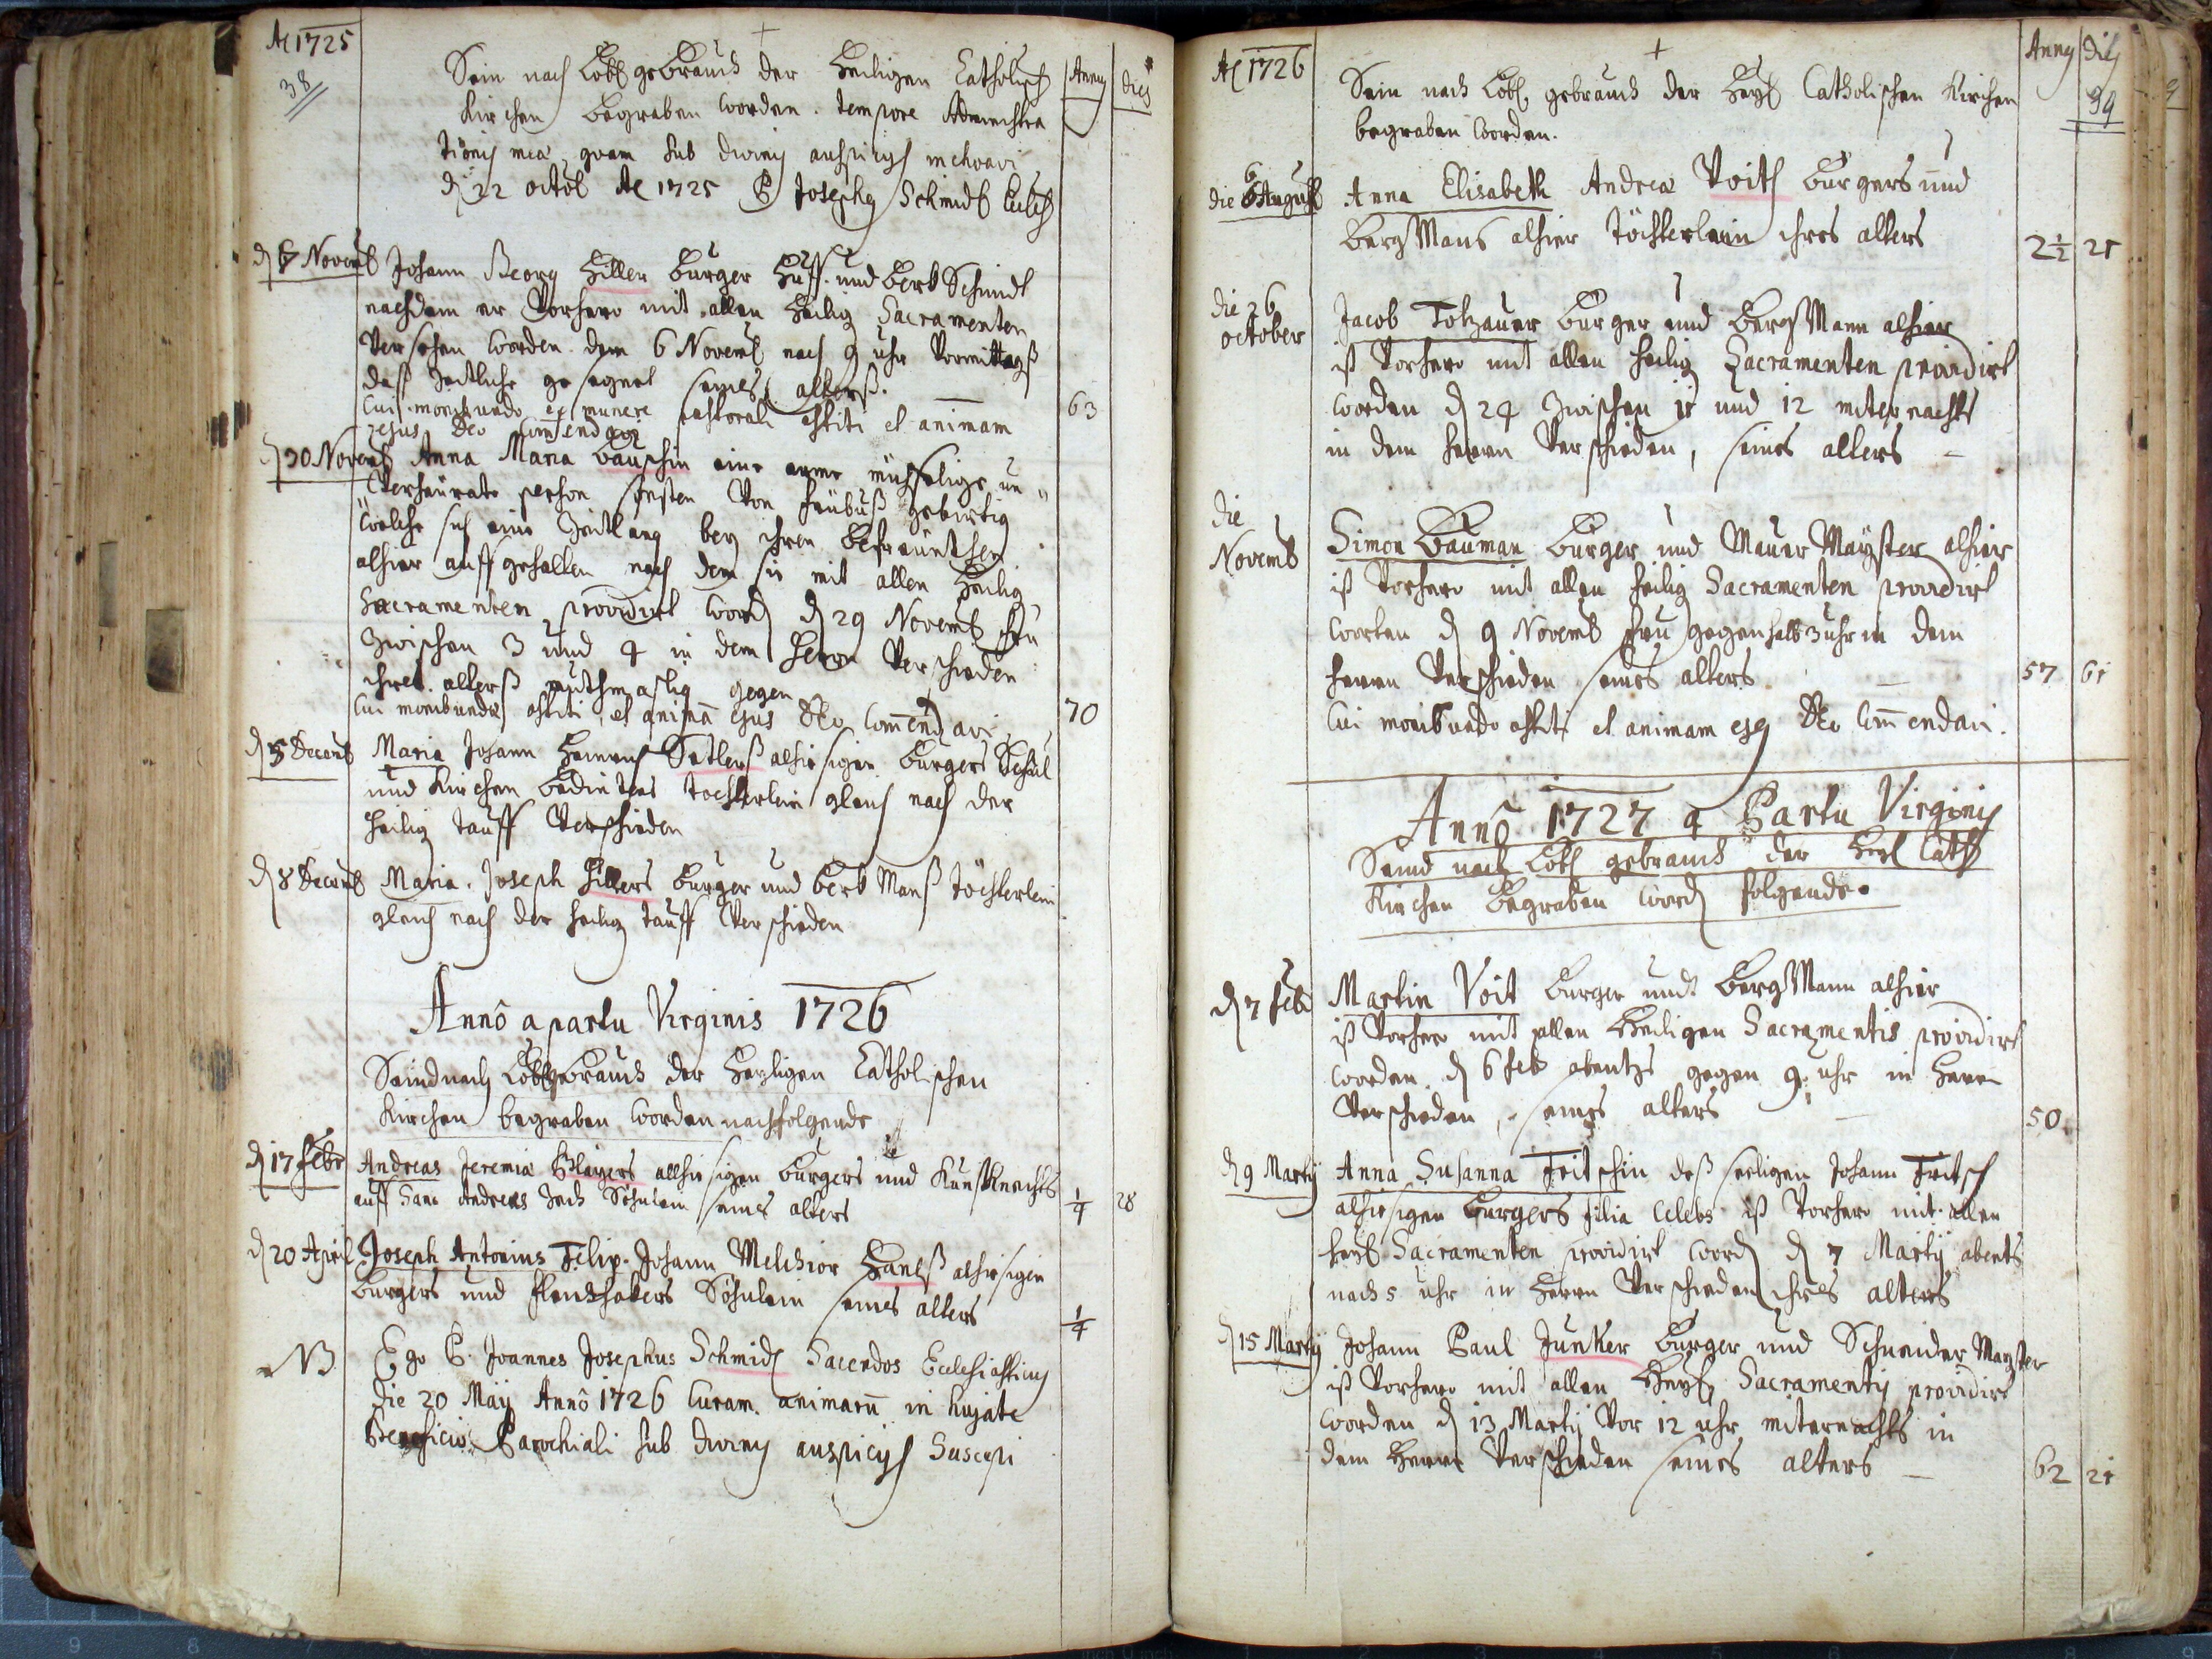 Ac 1725
38
Sein nach Löbl gebrauch der Heiligen Catholisch
Annus dies
Kirchen begraben worden. tempore Administra
tionis meæ, quam sub divinis auspicijs inchoavi
d 22 octob Ac 1725 P Josephus Schmidl
d 8 Novemb Johann Georg Hiller burger Huff- und berk Schmidt
nachdem er Vorhero mit allen heilig Sacramenten
Versehen worden dem 6 Novemb nach 9 uhr Vormittagß
daß Zeitliche gesegnet seines alterß. 63
Cui moribundo ex munere pastorali astiti et animam
ejus Deo Com̄endavi
d 30 Novemb Anna Maria bauschin eine arme müehselige un
Verheürate person sonsten Von früebuß gebürtig
welche sich eine Zeitlang bey ihren befreünthen
alhier auffgehalten nach dem sie mit allen Heilig
Sacramenten providirt word d 29 Novemb fru
Zwischen 3 und 4 in dem Herrn Verschieden
ihres alterß muthmaslig gegen 70
Cui moribundæ astiti et animā ejus Deo Com̄endavi
d 5 Decemb Maria Johann Heinrich Satlerß alhiesigen burgers Schul
und Kirchen bedientens tochterlein gleich nach der
heilig tauff Verschieden
d 8 Decemb Maria. Joseph Hillers burger und berk Manß töchterlein
gleich nach der heilig tauff Verschieden
Annô a partu Virginis 1726
Seind nach Löbl gebrauch der Heyligen Catholischen
Kirchen begraben worden nachfolgende
d 17 febr Andreas Jeremiæ Blayers allhiesigen burgers und Kunstknechts
auff Sanc Andreas Zech Söhnlein seines alters 1/4 28
d 20 April Joseph Antonius Felip. Johann Melchior Hanlß alhiesigen
burgers und Söhnlein seines alters 1/4
NB Ego P. Joannes Josephus Schmidl Sacerdos Ecclesiasticus
die 20 Maÿ Annô 1726 Curam animarū in hujate
Beneficio Parochiali sub divinis auspicijs Suscepi
Ac 1726
Annus dies
39
Sein nach Löbl. gebrauch der Heyl Catholischen Kirchen
begraben worden.
die 6 August Anna Elisabeth Andreæ Voith burgers und
bergMans alhier töchterlein ihres alters 2½ 21
die 26 october Jacob Totzauer burger und bergMann alhier
ist Vorhero mit allen heilig Sacramenten providirt
worden d 24 Zwischen 11 und 12 miternachts
in dem herrn Verschieden, seines alters –
die Novemb Simon Bauman burger und Maurer Mayster alhier
ist Vorhero mit allen heilig Sacramenten providirt
worden d 9 Novemb fru gegen halb 3 uhr in dem
herrn Verschieden seines alters 57 61
Cui moribundo astiti et animam ejus Deo Com̄endavi.
Annô 1727 a Partu Virginis
Seind nach Löbl gebrauch der Heyl Cath
Kirchen begraben word folgende.
d 7 feb Martin Voit burger undt bergMann alhier
ist Vorhero mit allen Heiligen Sacramentis providirt
worden d 6 feb abents gegen 9. uhr in Herrn
Verschieden, seines alters – 50
d 9 Martÿ Anna Susanna Fritschin deß seeligen Johann Fritsch
alhiesigen burgers filia Celebs ist Vorhero mit allen
heyl Sacramenten providirt word d 7 Martÿ abents
nach 5 uhr in Herrn Verschieden ihres alters
d 15 Martÿ Johann Paul Junker burger und Schneider Mayster
ist Vorhero mit allen Heyl Sacramentis providirt
worden d 13 Martÿ Vor 12 uhr miternachts in
dem Herrn Verschieden seines alters – 62 21